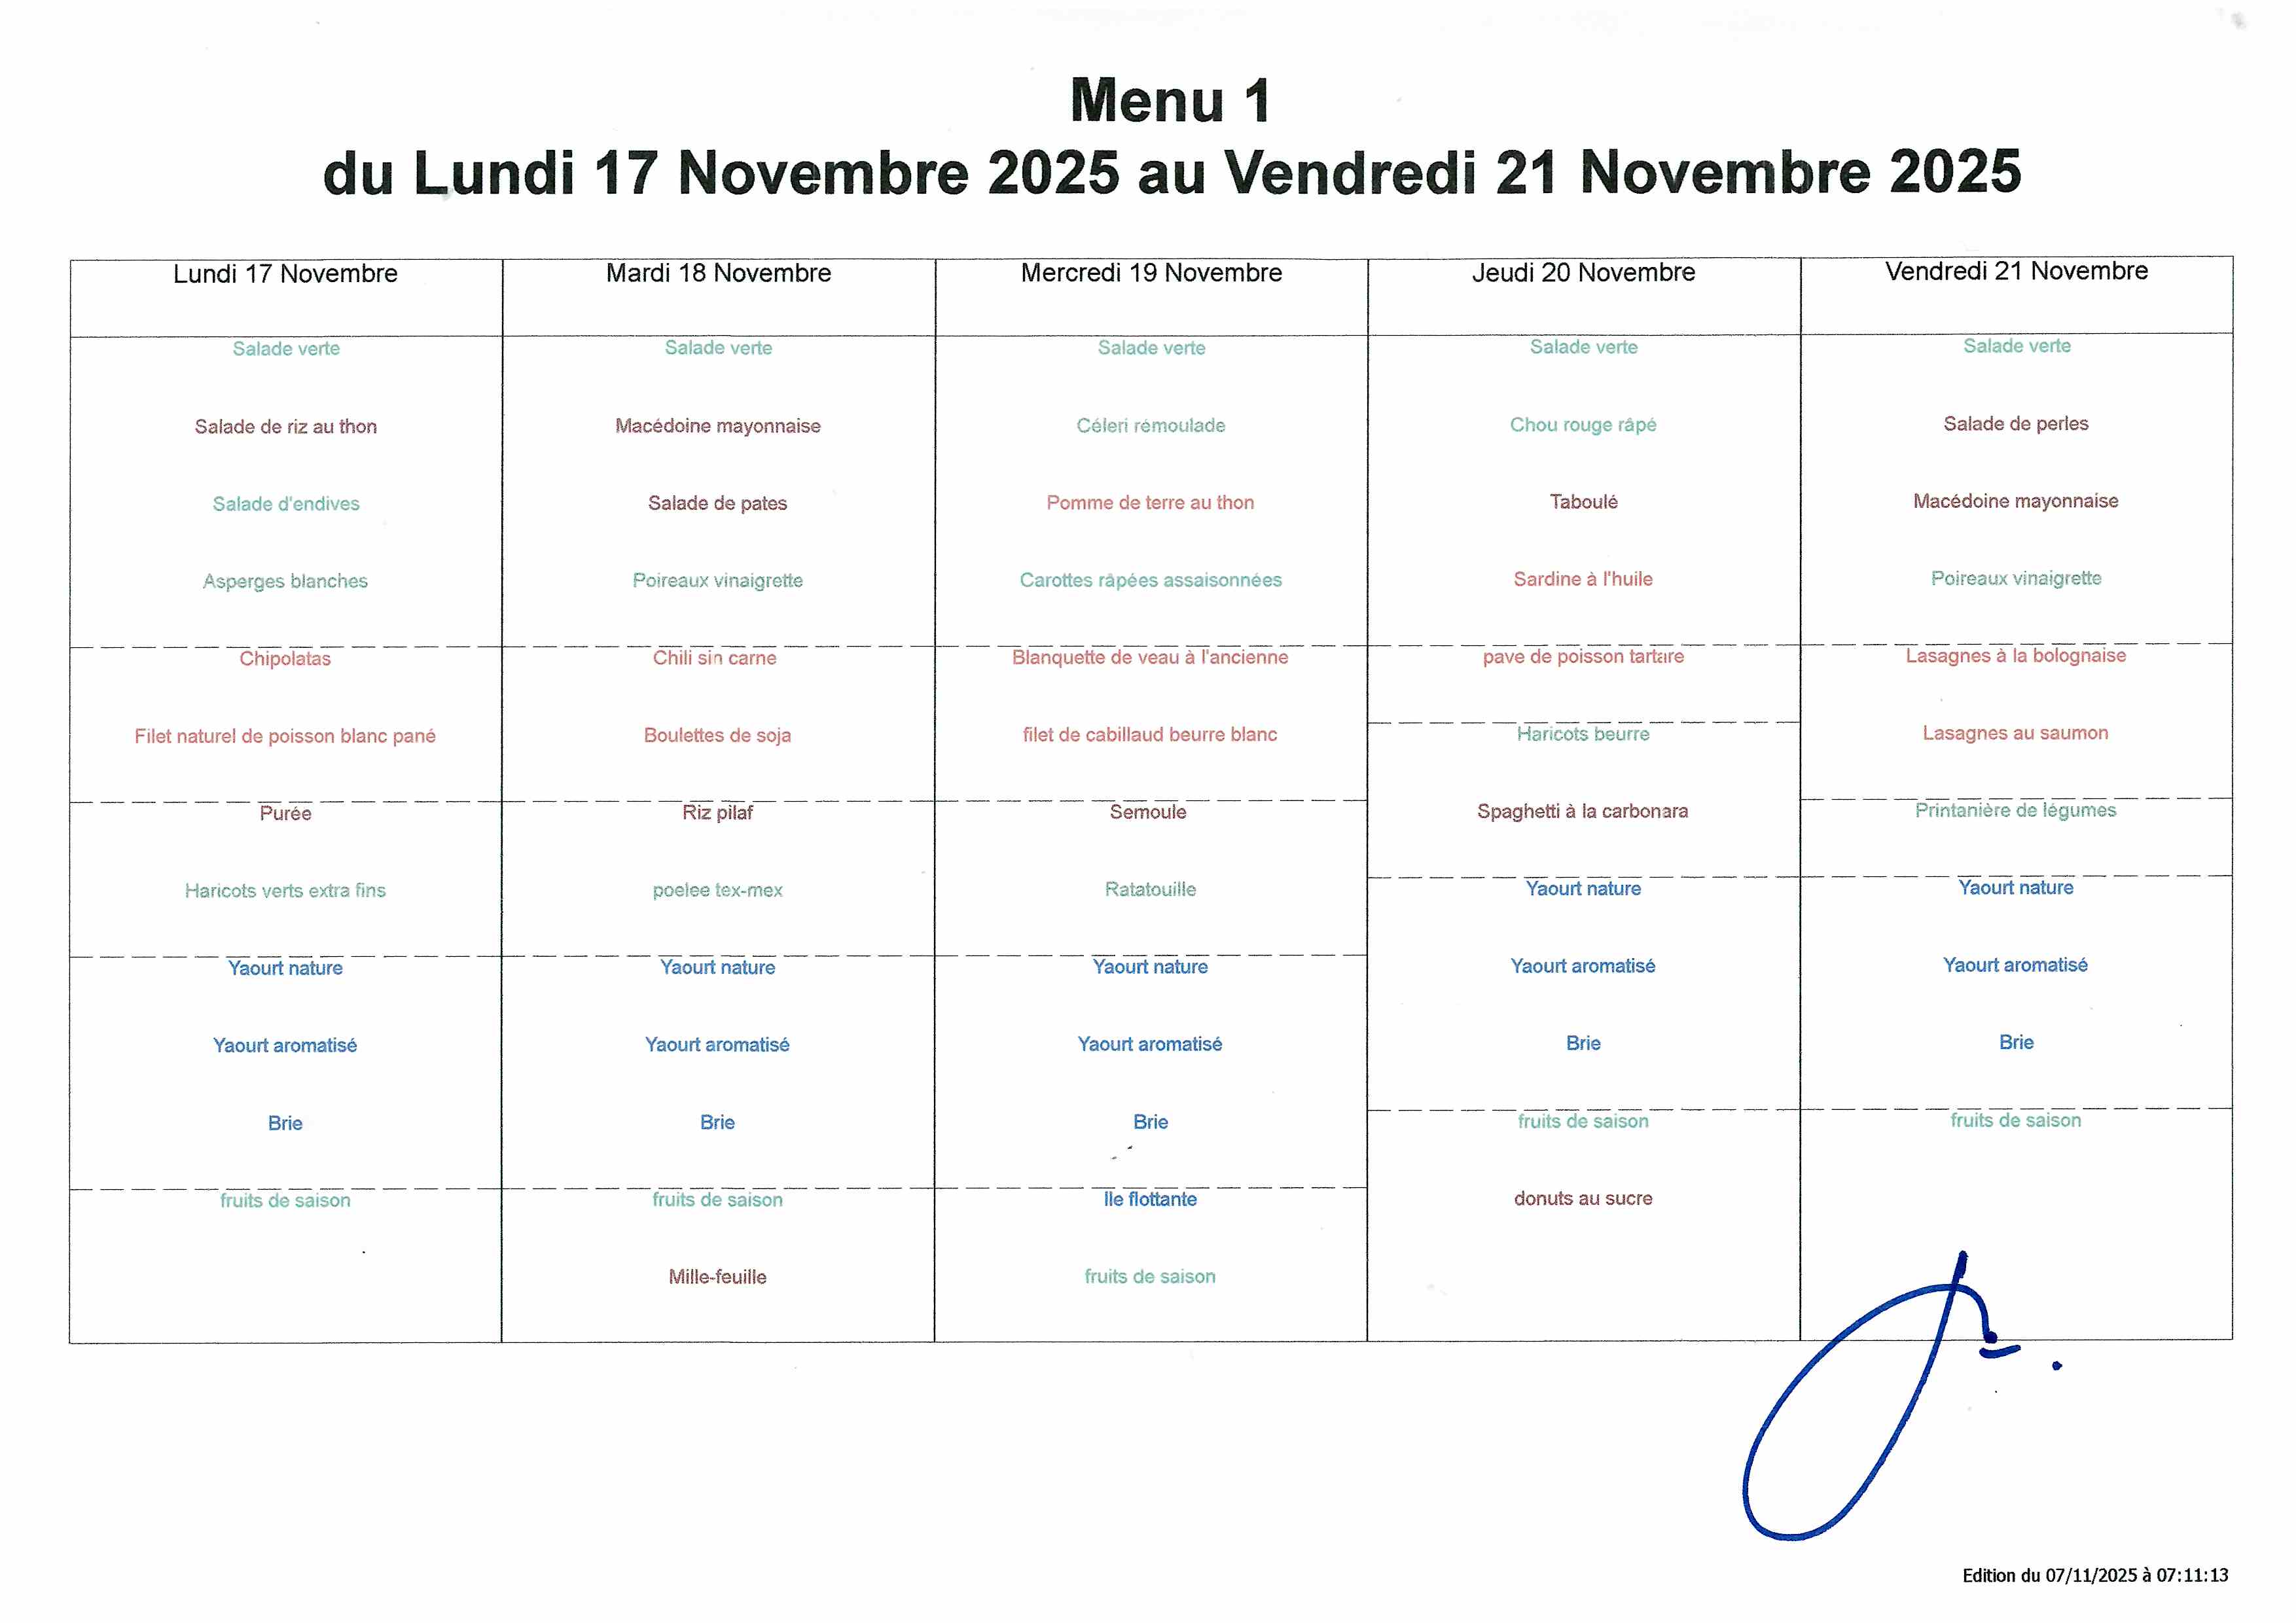 Menu 1
du Lundi 17 Novembre 2025 au Vendredi 21 Novembre 2025
Lundi 17 Novembre
Salade verte
Salade de riz au thon
Salade d'endives
Asperges blanches
Chipolatas
Filet naturel de poisson blanc pané
Purée
Haricots verts extra fins
Yaourt nature
Yaourt aromatisé
Brie
fruits de saison
Mardi 18 Novembre
Salade verte
Macédoine mayonnaise
Salade de pates
Poireaux vinaigrette
Chili sin carne
Boulettes de soja
Riz pilaf
poelee tex-mex
Yaourt nature
Yaourt aromatisé
Brie
fruits de saison
Mille-feuille
Mercredi 19 Novembre
Salade verte
Céleri rémoulade
Pomme de terre au thon
Carottes râpées assaisonnées
Blanquette de veau à l'ancienne
filet de cabillaud beurre blanc
Semoule
Ratatouille
Yaourt nature
Yaourt aromatisé
Brie
Ile flottante
fruits de saison
Jeudi 20 Novembre
Salade verte
Chou rouge râpé
Taboulé
Sardine à l'huile
pave de poisson tartare
Haricots beurre
Spaghetti à la carbonara
Yaourt nature
Yaourt aromatisé
Brie
fruits de saison
donuts au sucre
Vendredi 21 Novembre
Salade verte
Salade de perles
Macédoine mayonnaise
Poireaux vinaigrette
Lasagnes à la bolognaise
Lasagnes au saumon
Printanière de légumes
Yaourt nature
Yaourt aromatisé
Brie
fruits de saison
Edition du 07/11/2025 à 07:11:13